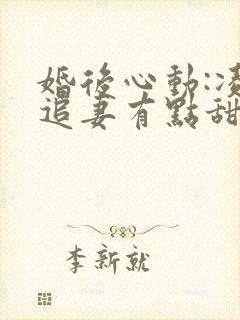 婚後心動:凌
追妻有點甜
李新就